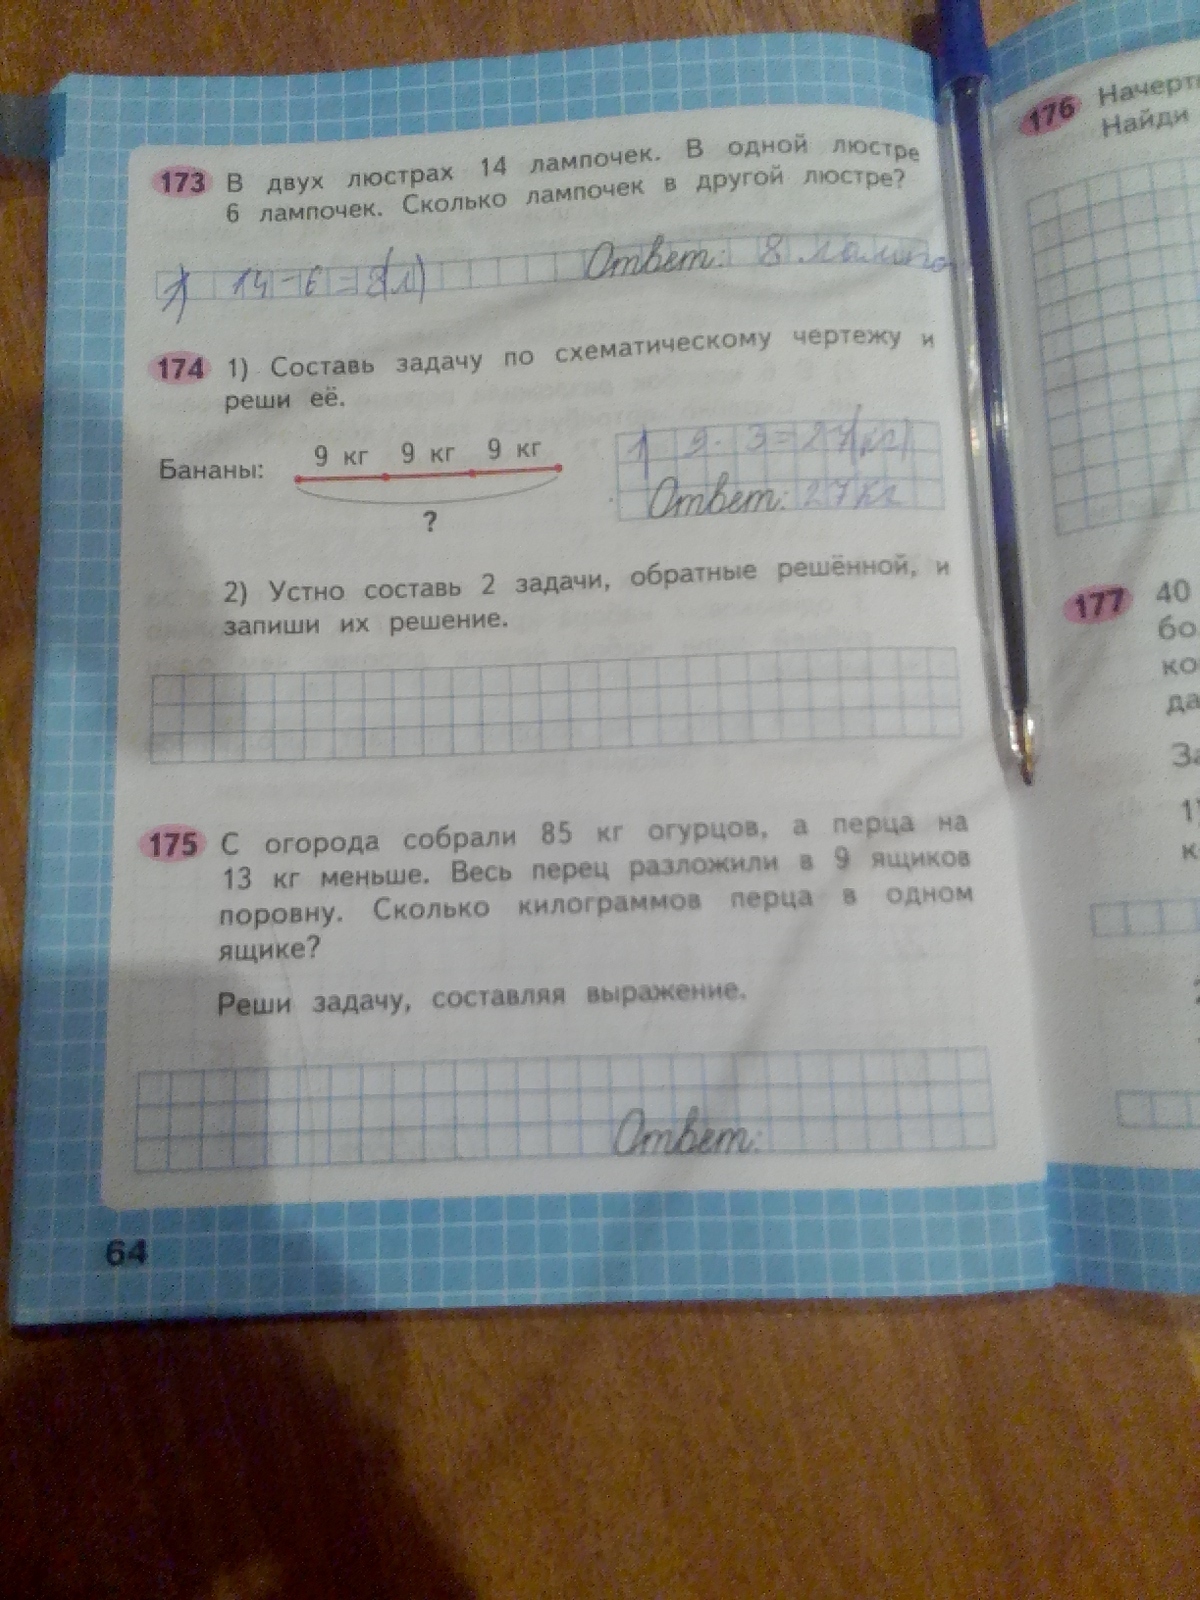 173 В двух люстрах 14 лампочек. В одной люстре
6 лампочек. Сколько лампочек в другой люстре?
1) 14-6=8(л) Ответ: 8 лампо
174 1) Составь задачу по схематическому чертежу и
реши её.
9 кг 9 кг 9 кг
Бананы:
?
1) 9·3=27(кг)
Ответ: 27кг
2) Устно составь 2 задачи, обратные решённой, и
запиши их решение.
175 С огорода собрали 85 кг огурцов, а перца на
13 кг меньше. Весь перец разложили в 9 ящиков
поровну. Сколько килограммов перца в одном
ящике?
Реши задачу, составляя выражение.
Ответ:
64
176 Начерт
Найди
177 40
бо
ко
да
За
1)
к